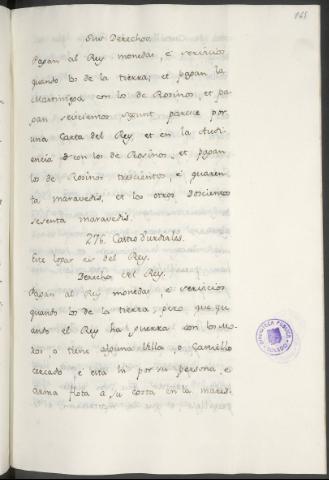 165
Sus Derechos.
Pagan al Rey monedas, e servicios
quando los de la tierra; et pagan la
Martiniega con los de Rosinos, et pa-
gan seiscientos segunt parece por
una Carta del Rey, et en la Audi-
encia con los de Rosinos, et pagan
los de Rosinos trescientos e quaren-
ta maravedis, et los otros Doscientos
sesenta maravedis.
276. Castro Durdiales.
Este logar es del Rey.
Derechos del Rey.
Pagan al Rey monedas, e servicios
quando los de la tierra, pero que qu-
ando el Rey ha guerra con los Mo-
ros, o tiene alguna Villa, o Castiello
cercado, e esta hi por su persona, e
arma flota a su costa en la mares-
BIBLIOTECA PUBLICA
TOLEDO